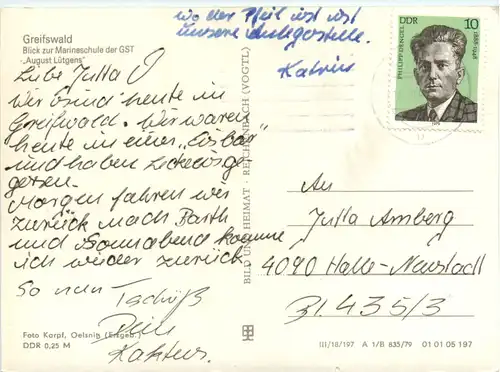 Greifswald
Blick zur Marineschule der GST
„August Lütgens"
wo der Pfeil ist ist
unsere Anlegestelle.
Katrin
DDR 10
PHILIPP DENGEL
1888-1948
Liebe Jutta
Wir sind heute in
Greifswald. Wir waren
heute in einer „Eisbar"
und haben Leckeres ge
gessen.
Morgen fahren wir
zurück nach Barth
und Sonnabend komme
ich wieder zurück
So nun Tschüß
BILD UND HEIMAT · REICHENBACH (VOGTL)
An
Jutta Amberg
4090 Halle-Neustadt
Bl. 435/3
Foto Karpf, Oelsnitz (Erzgeb.)
DDR 0,25 M
III/18/197 A 1/B 635/79 01 01 05 197